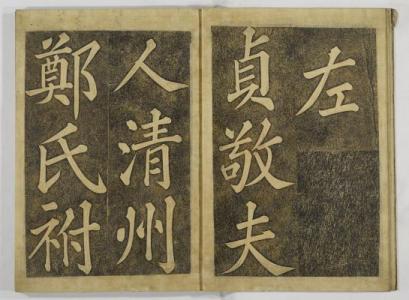 左
貞敬夫
人清州
鄭氏祔